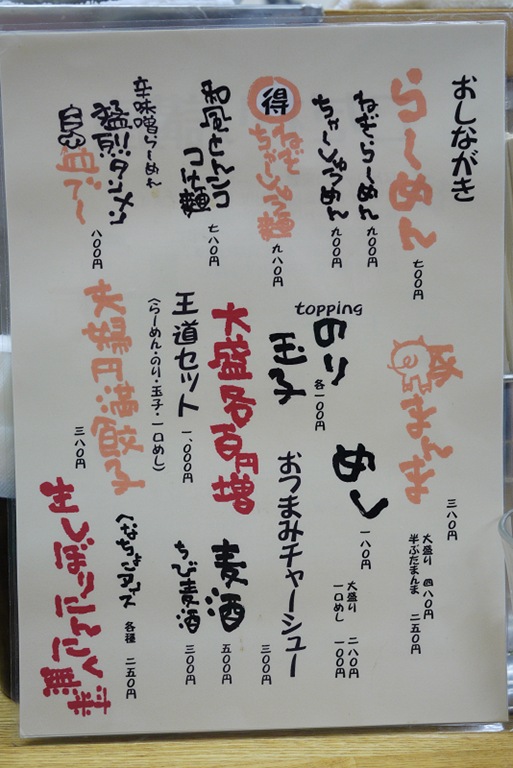 おしながき
らーめん
七00円
ねぎらーめん
九00円
ちゃーしゅうめん
九00円
得
ねぎちゃーしゅう麺
九八0円
和風とんこつ
つけ麺
七八0円
辛味噌らーめん
猛烈!!タンメン
自今
血でー
八00円
豚まんま
三八0円
大盛り 四八0円
半ぶたまんま 二五0円
topping
のり
玉子
各一00円
めし
一八0円
大盛り 二八0円
一口めし 一00円
大盛各百円増
おつまみチャーシュー
三00円
王道セット 一,000円
(らーめん・のり・玉子・一口めし)
麦酒
五00円
ちび麦酒
三00円
夫婦円満餃子
三八0円
へなちょこアイス 各種 二五0円
生しぼりにんにく無料